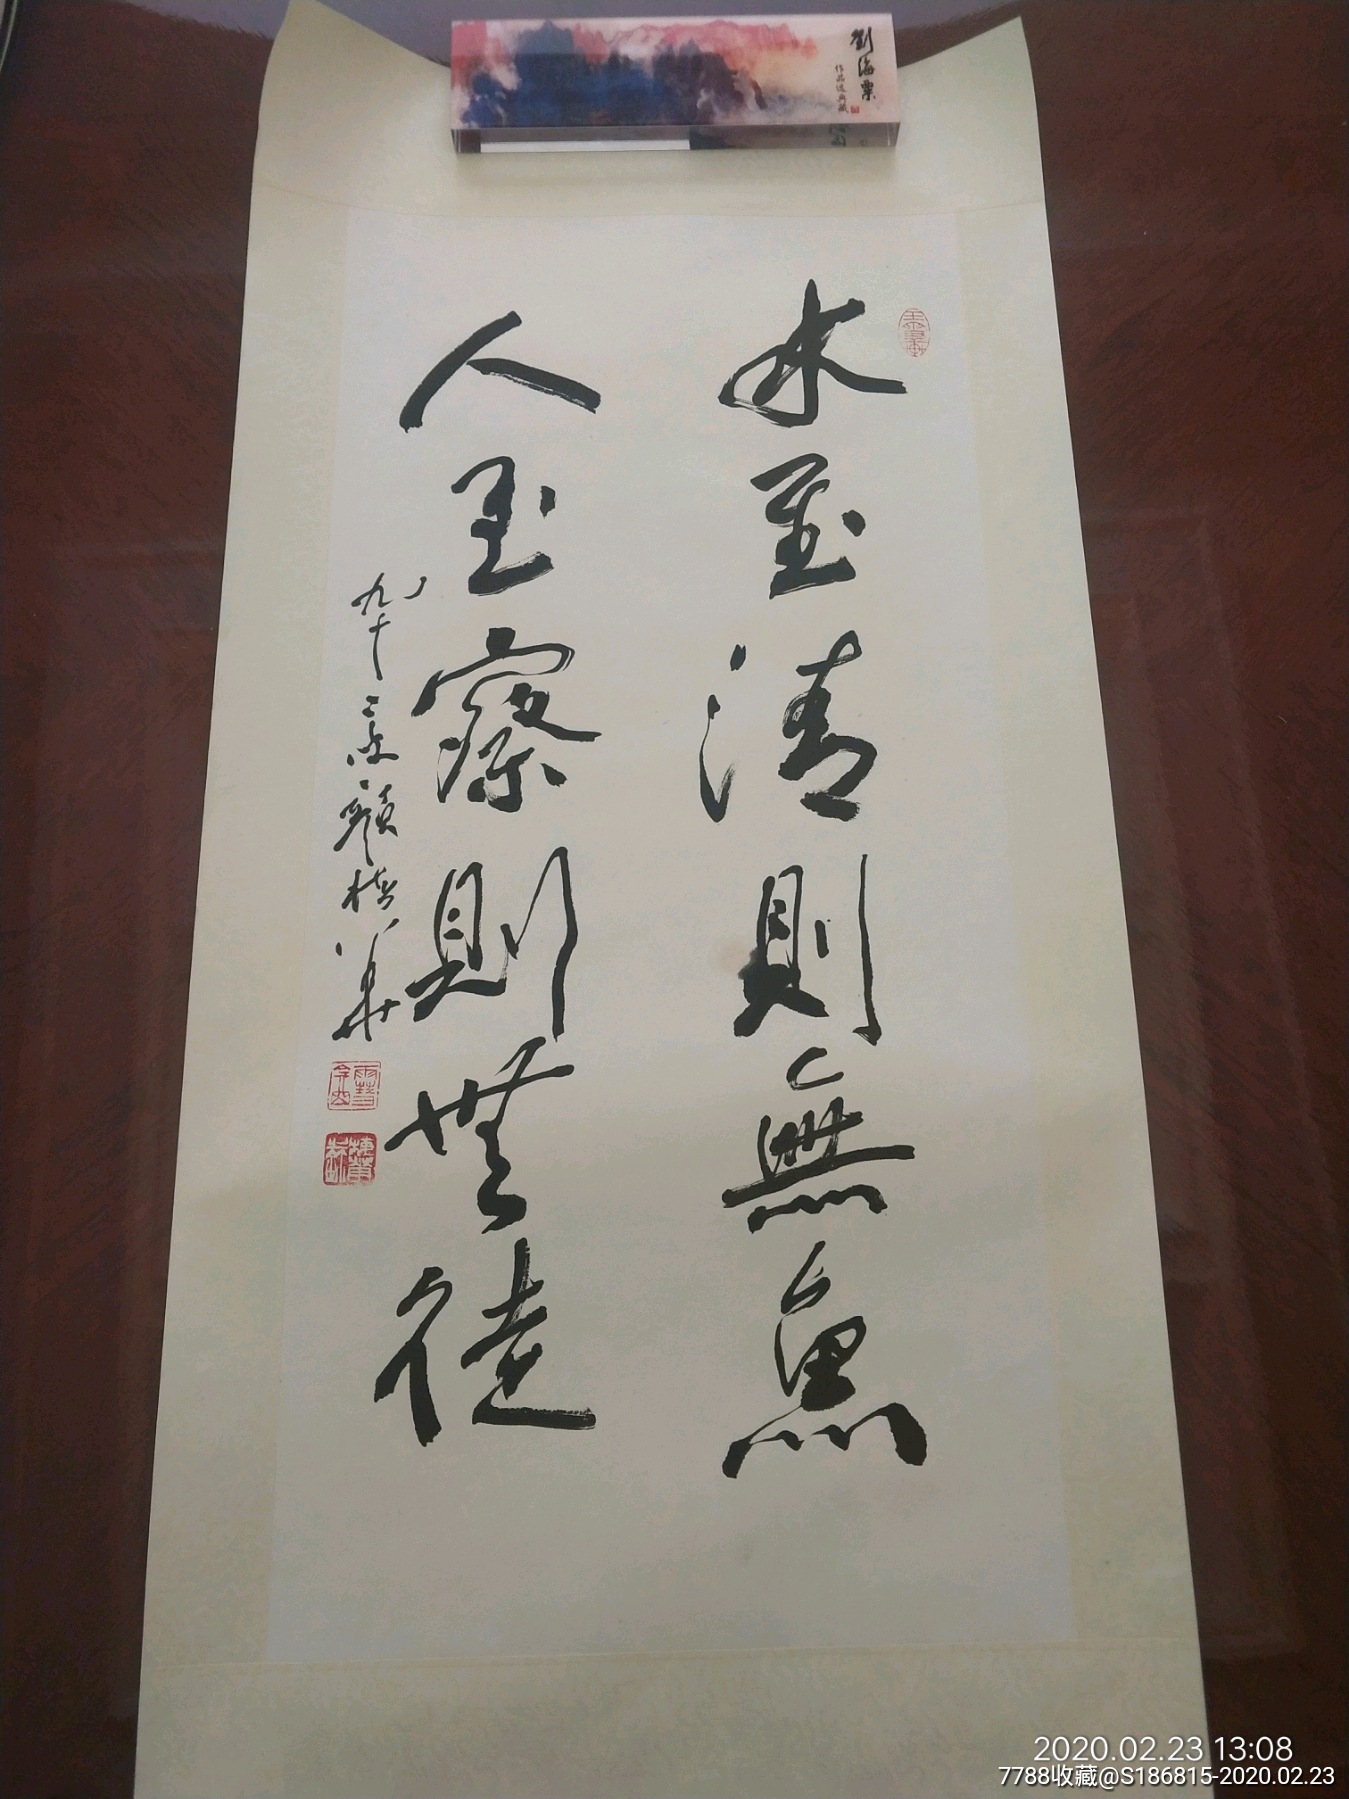 劉海粟
作品達典藏
水至清則無魚
人至察則無徒
九十二叟顧楂華
2020.02.23 13:08
7788收藏@S186815-2020.02.23